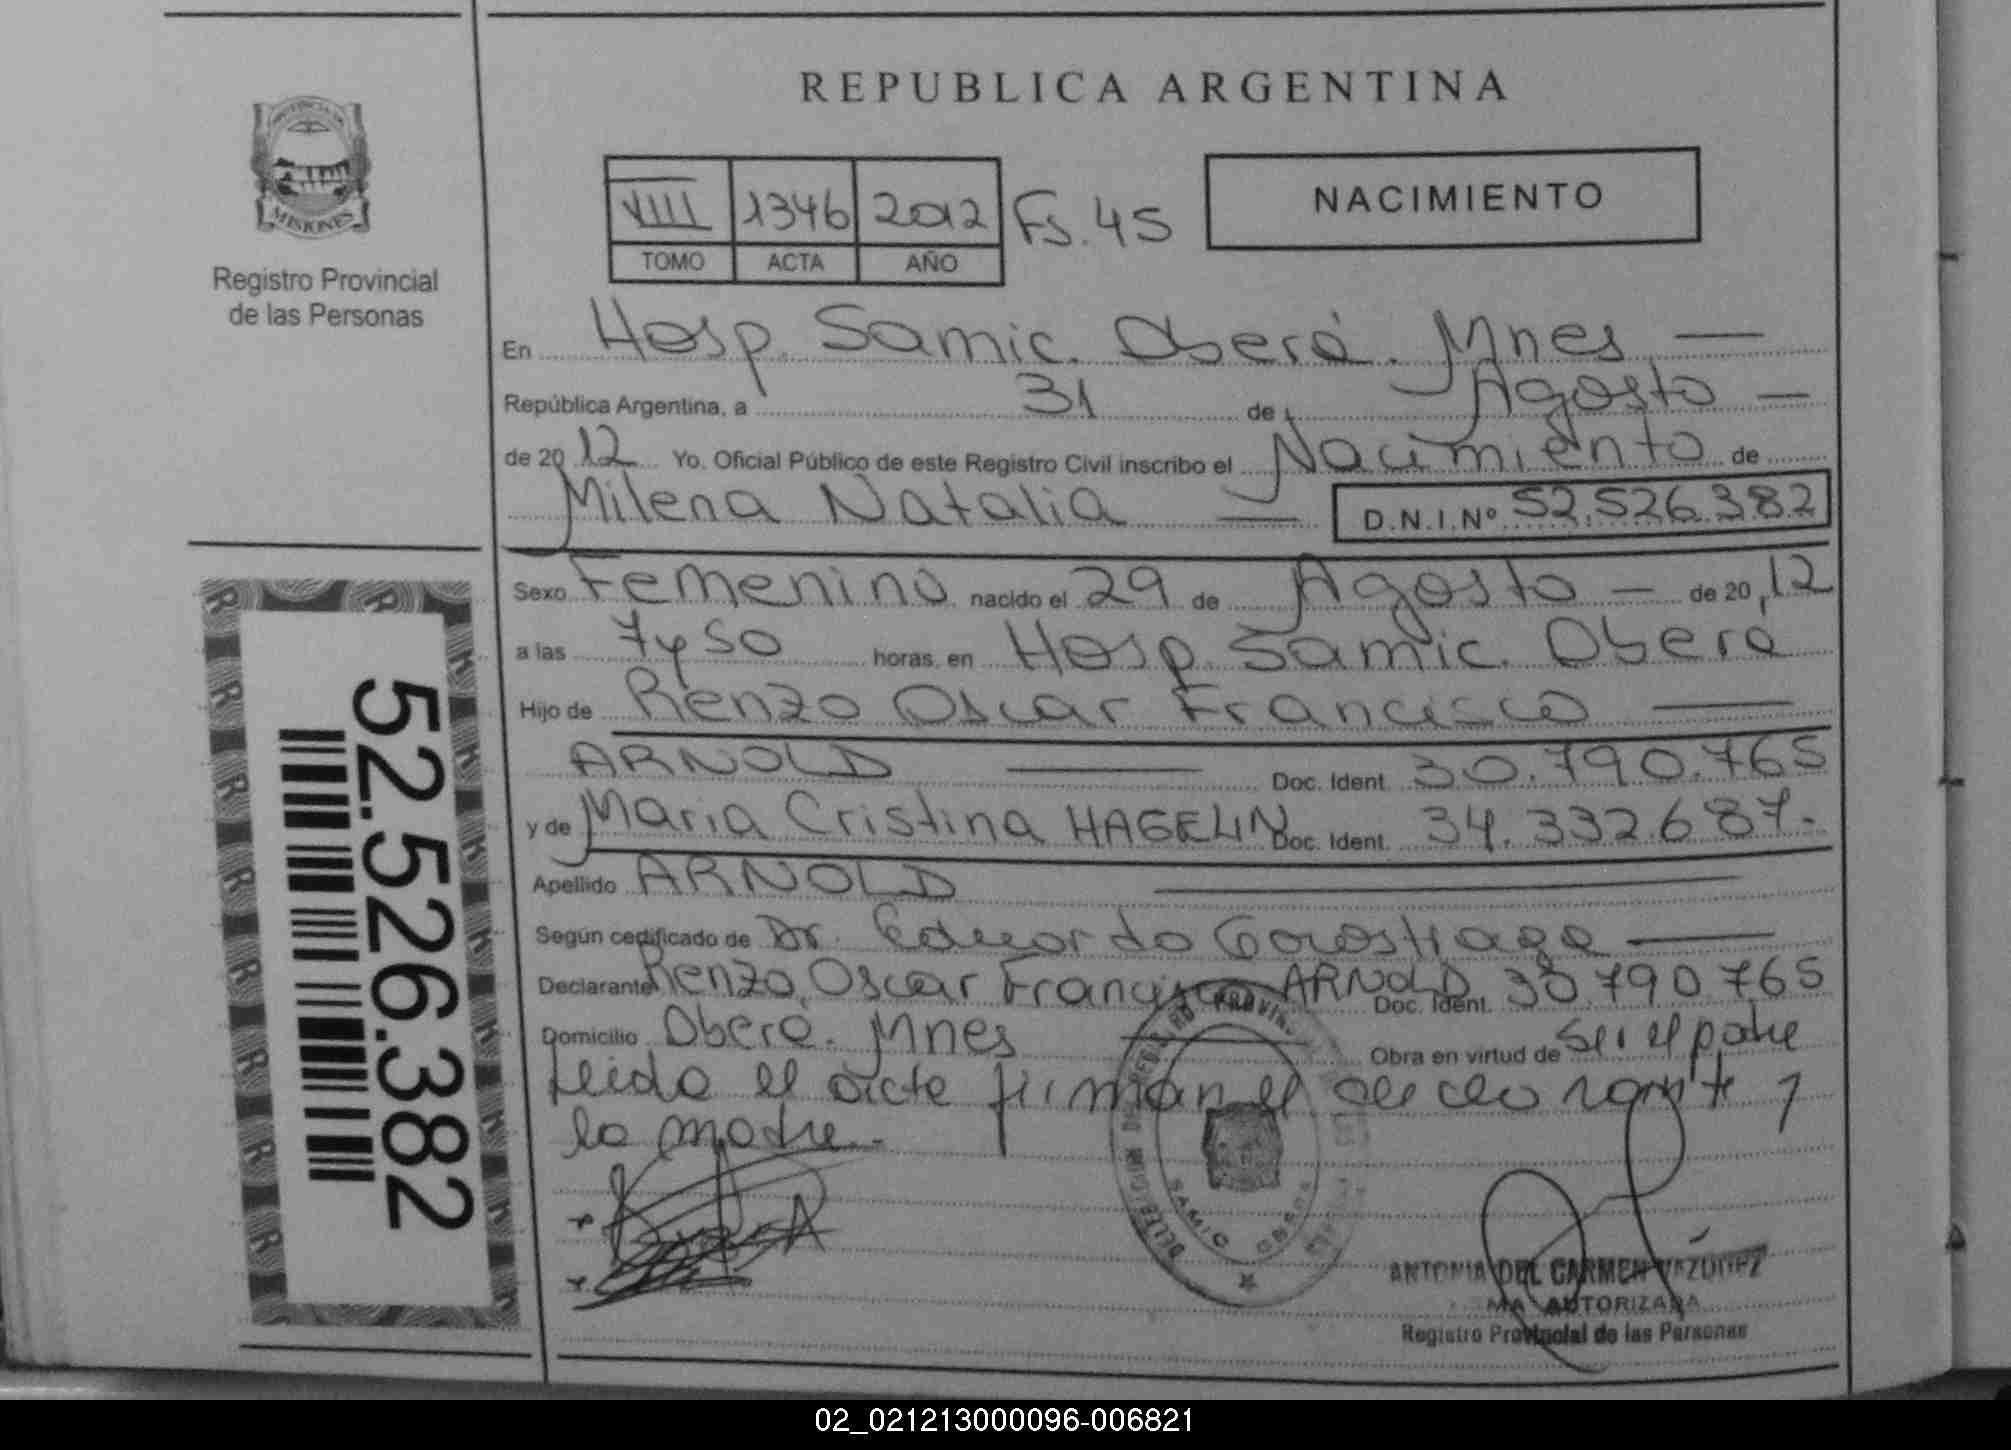 REPUBLICA ARGENTINA
PROVINCIA DE
MISIONES
Registro Provincial
de las Personas
VIII 1346 2012 Fs. 45
TOMO ACTA AÑO
NACIMIENTO
En Hosp. Samic. Oberá. Mnes —
República Argentina, a 31 de Agosto —
de 20 12 Yo. Oficial Público de este Registro Civil inscribo el Nacimiento de
Milena Natalia — D.N.I.Nº 52.526.382
Sexo Femenino nacido el 29 de Agosto — de 20 12
a las 7 y 50 horas, en Hosp. Samic. Oberá
Hijo de Renzo Oscar Francisco —
ARNOLD — Doc. Ident. 30.790.765
y de Maria Cristina HAGELIN Doc. Ident. 34.332.687.
Apellido ARNOLD —
Según certificado de Dr. Eduardo Gorostiaga —
Declarante Renzo Oscar Francisco ARNOLD Doc. Ident. 30.790.765
Domicilio Oberá. Mnes — Obra en virtud de Ser el padre
Leida el acta firman el declarante y
la madre.
52.526.382
SAMIC OBERA
ANTONIA DEL CARMEN VAZQUEZ
AUTORIZADA
Registro Provincial de las Personas
02_021213000096-006821